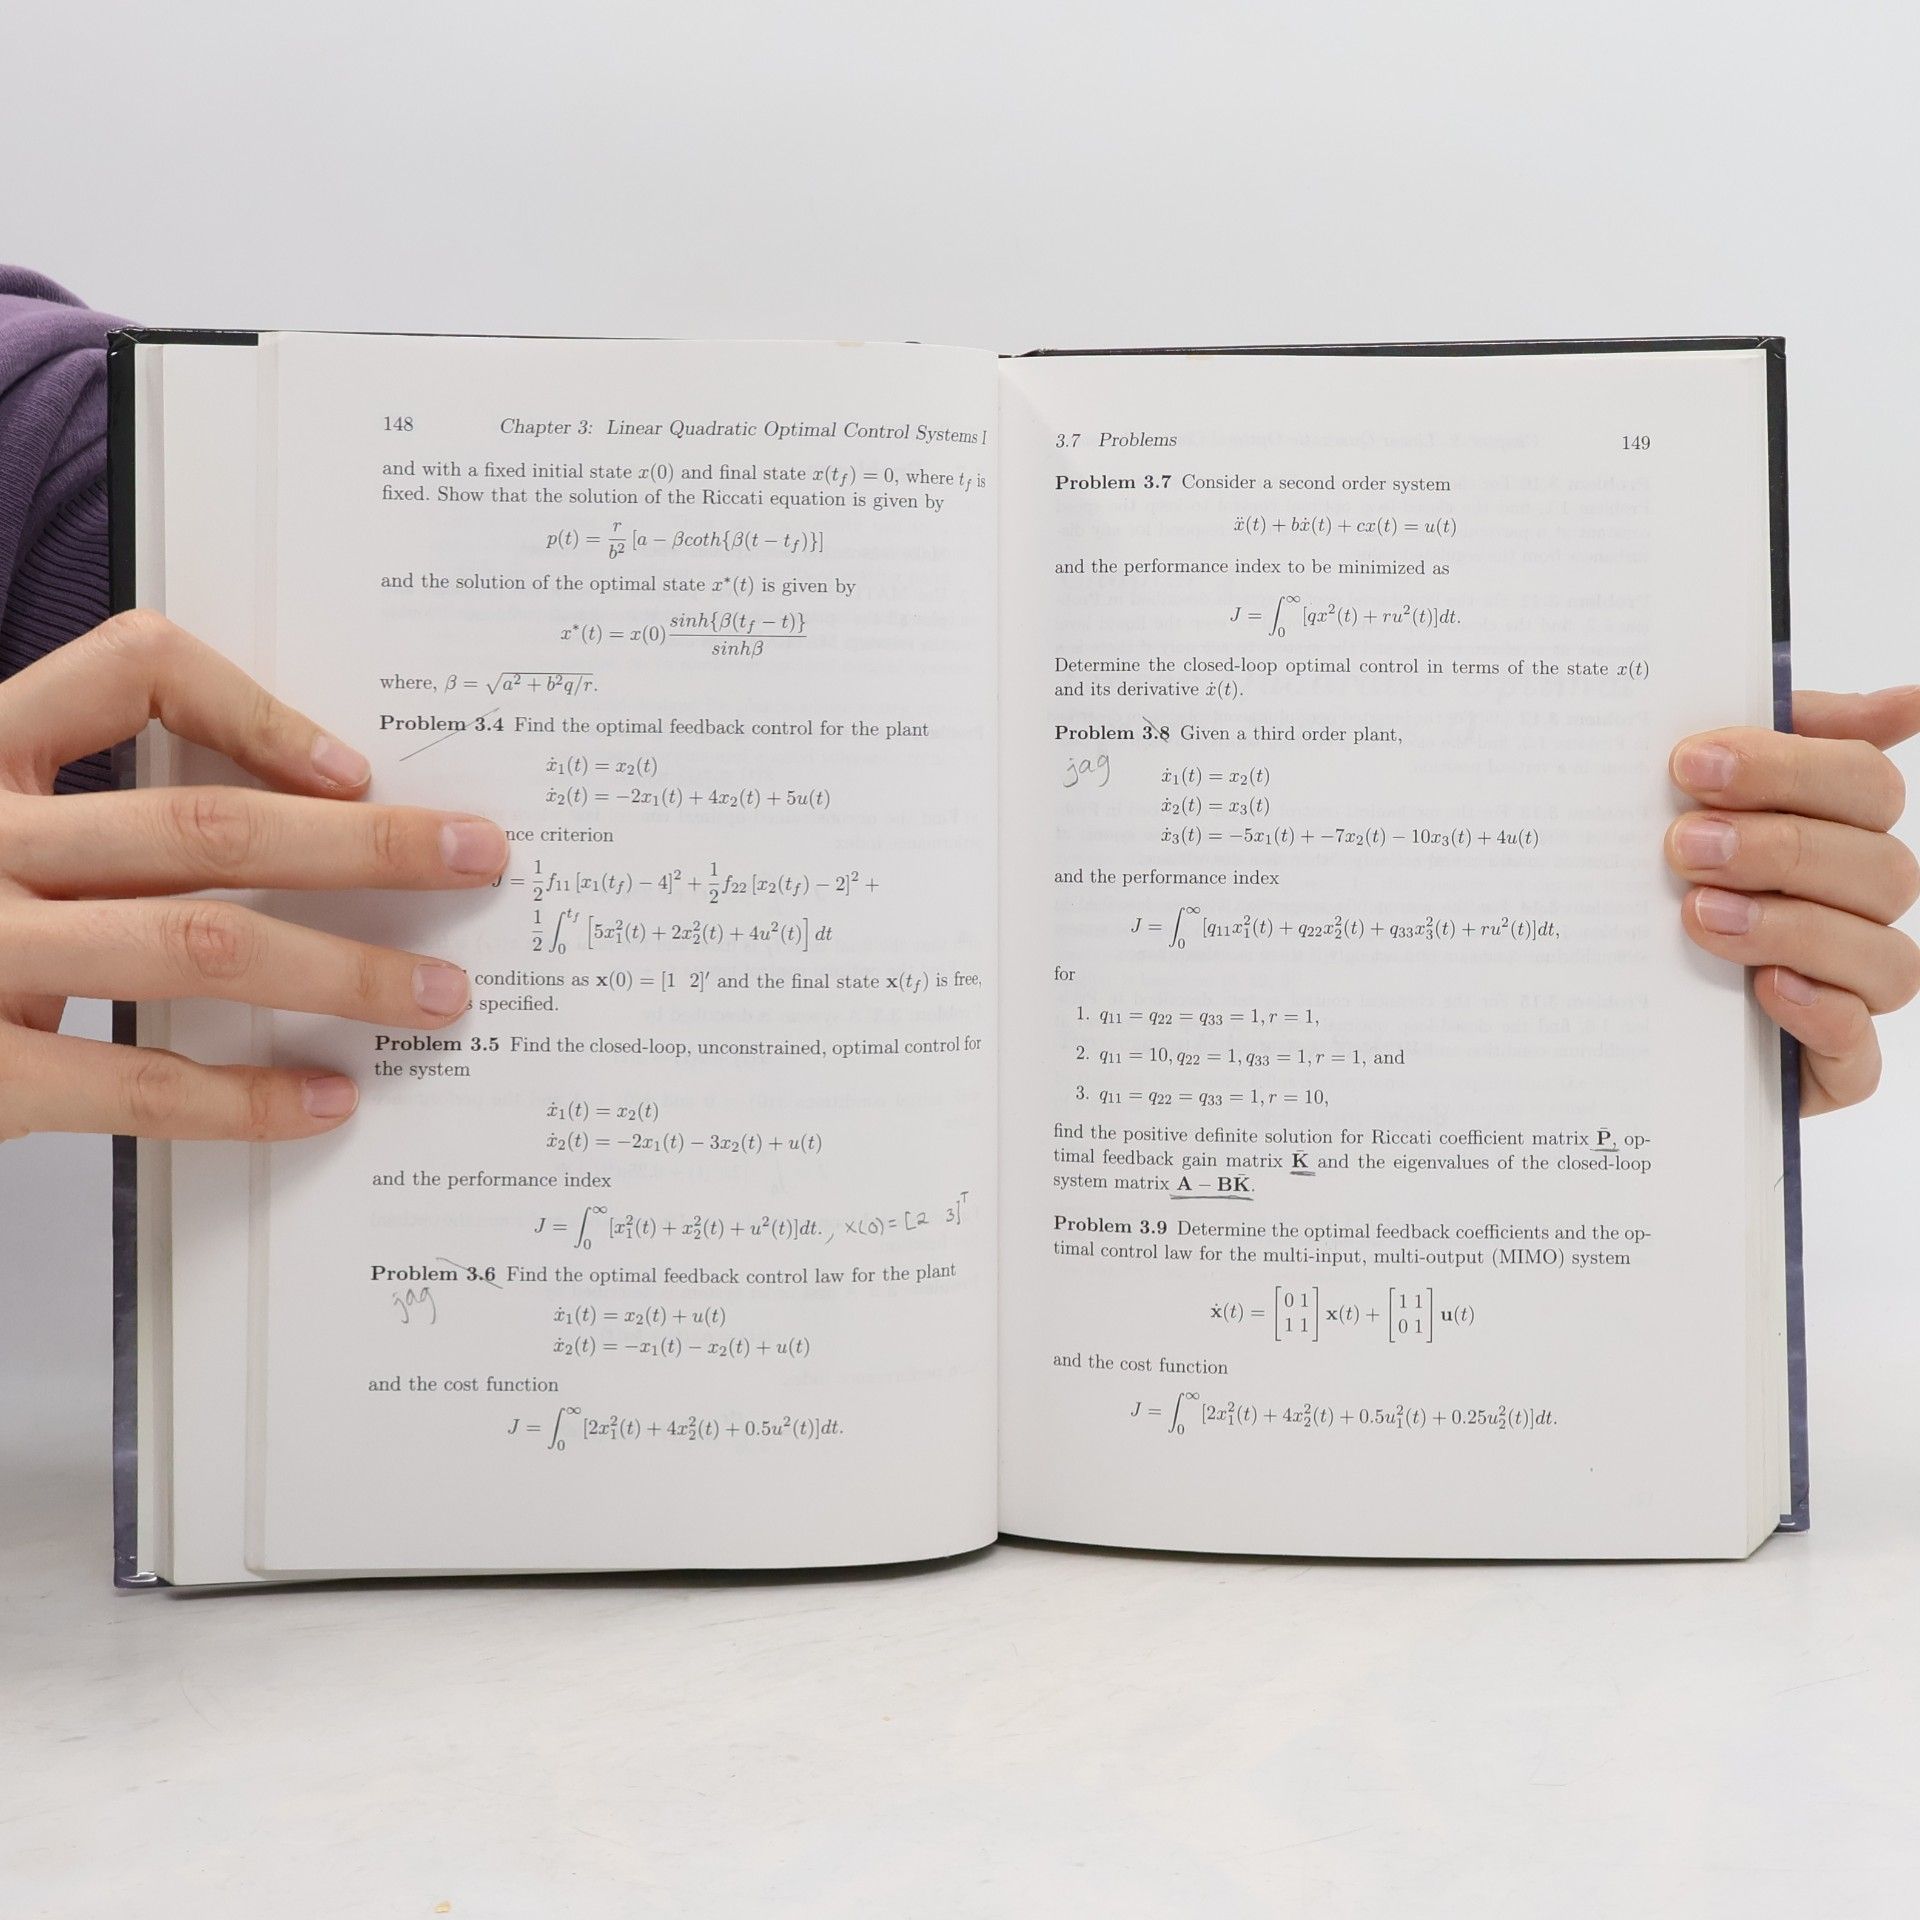 148 Chapter 3: Linear Quadratic Optimal Control Systems I
and with a fixed initial state x(0) and final state x(t_f) = 0, where t_f is
fixed. Show that the solution of the Riccati equation is given by
p(t) = r/b² [a − βcoth{β(t − t_f)}]
and the solution of the optimal state x*(t) is given by
x*(t) = x(0) sinh{β(t_f − t)}/sinhβ
where, β = √(a² + b²q/r).
Problem 3.4 Find the optimal feedback control for the plant
ẋ₁(t) = x₂(t)
ẋ₂(t) = −2x₁(t) + 4x₂(t) + 5u(t)
criterion
J = 1/2 f₁₁ [x₁(t_f) − 4]² + 1/2 f₂₂ [x₂(t_f) − 2]² +
1/2 ∫₀^{t_f} [5x₁²(t) + 2x₂²(t) + 4u²(t)] dt
conditions as x(0) = [1 2]′ and the final state x(t_f) is free,
specified.
Problem 3.5 Find the closed-loop, unconstrained, optimal control for
the system
ẋ₁(t) = x₂(t)
ẋ₂(t) = −2x₁(t) − 3x₂(t) + u(t)
and the performance index
J = ∫₀^∞ [x₁²(t) + x₂²(t) + u²(t)]dt. , x(0) = [2 3]ᵀ
Problem 3.6 Find the optimal feedback control law for the plant
jag
ẋ₁(t) = x₂(t) + u(t)
ẋ₂(t) = −x₁(t) − x₂(t) + u(t)
and the cost function
J = ∫₀^∞ [2x₁²(t) + 4x₂²(t) + 0.5u²(t)]dt.
3.7 Problems 149
Problem 3.7 Consider a second order system
ẍ(t) + bẋ(t) + cx(t) = u(t)
and the performance index to be minimized as
J = ∫₀^∞ [qx²(t) + ru²(t)]dt.
Determine the closed-loop optimal control in terms of the state x(t)
and its derivative ẋ(t).
Problem 3.8 Given a third order plant,
jag
ẋ₁(t) = x₂(t)
ẋ₂(t) = x₃(t)
ẋ₃(t) = −5x₁(t) + −7x₂(t) − 10x₃(t) + 4u(t)
and the performance index
J = ∫₀^∞ [q₁₁x₁²(t) + q₂₂x₂²(t) + q₃₃x₃²(t) + ru²(t)]dt,
for
1. q₁₁ = q₂₂ = q₃₃ = 1, r = 1,
2. q₁₁ = 10, q₂₂ = 1, q₃₃ = 1, r = 1, and
3. q₁₁ = q₂₂ = q₃₃ = 1, r = 10,
find the positive definite solution for Riccati coefficient matrix P̄, op-
timal feedback gain matrix K̄ and the eigenvalues of the closed-loop
system matrix A − BK̄.
Problem 3.9 Determine the optimal feedback coefficients and the op-
timal control law for the multi-input, multi-output (MIMO) system
ẋ(t) = [0 1; 1 1] x(t) + [1 1; 0 1] u(t)
and the cost function
J = ∫₀^∞ [2x₁²(t) + 4x₂²(t) + 0.5u₁²(t) + 0.25u₂²(t)]dt.